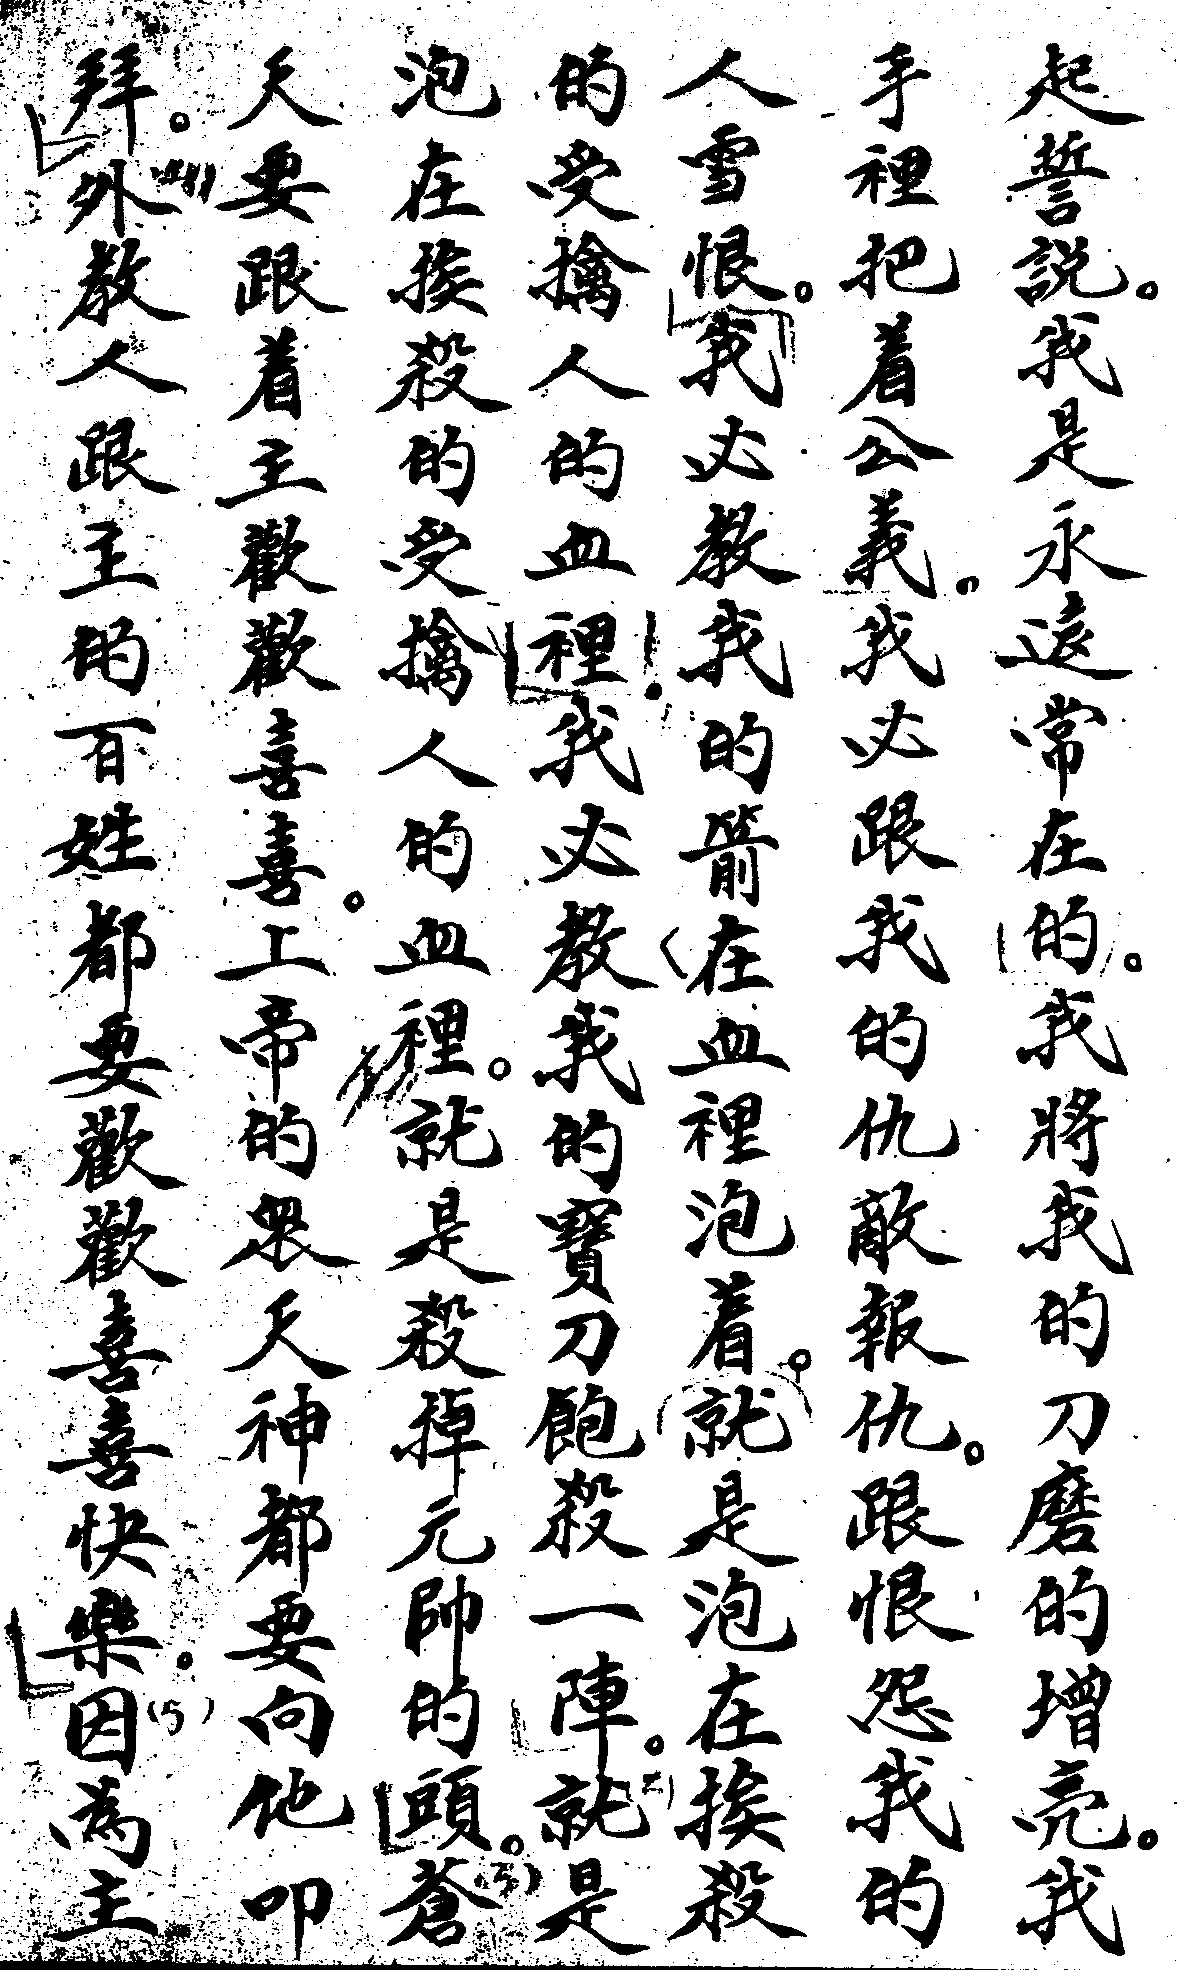 起誓說。我是永遠常在的。我將我的刀磨的增亮。我
手裡把着公義。我必跟我的仇敵報仇。跟恨怨我的
人雪恨。我必教我的箭在血裡泡着。就是泡在挨殺
的受擒人的血裡我必教我的寶刀飽殺一陣。就是
泡在挨殺的受擒人的血裡。就是殺掉元帥的頭。蒼
天要跟着主歡歡喜喜。上帝的眾天神都要向他叩
拜。外教人跟主的百姓都要歡歡喜喜快樂。因為主